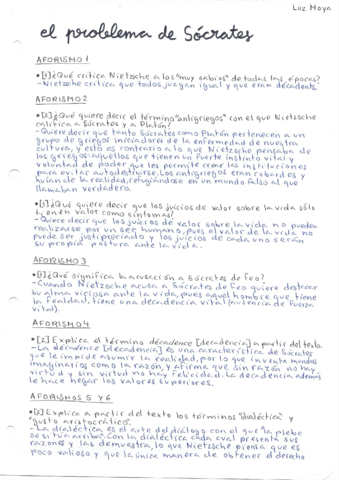 Luz Moya
el problema de Sócrates
AFORISMO 1
•[1]¿Qué critica Nietzsche a los "muy sabios" de todas las épocas?
-Nietzsche critica que todos juzgan igual y que eran decadents.
AFORISMO 2
•[2]¿Qué quiere decir el término "antigriegos" con el que Nietzsche
califica a Sócrates y a Platón?
-Quiere decir que tanto Sócrates como Platón pertenecen a un
grupo de griegos iniciadores de la enfermedad de nuestra
cultura, y esto es contrario a lo que Nietzsche pensaba de
los griegos: aquellos que tienen un fuerte instinto vital y
voluntad de poder que les permite crear las instituciones
para evitar autodestruirse. Los antigriegos eran cobardes y
huían de la realidad, refugiándose en un mundo falso al que
llamaban verdadero.
•[1]¿Qué quiere decir que los juicios de valor sobre la vida sólo
tienen valor como síntomas?
-Quiere decir que los juicios de valor sobre la vida no pueden
realizarse por un ser humano, pues al valor de la vida no
puede ser justipreciado y los juicios de cada uno serán
su propia postura ante la vida.
AFORISMO 3
•[1]¿Qué significa la acusación a Sócrates de feo?
-Cuando Nietzsche acusa a Sócrates de feo quiere destacar
su alma viciosa ante la vida, pues aquel hombre que tiene
la fealdad, tiene una decadencia vital (ausencia de fuerza
vital).
AFORISMO 4
•[2] Explica el término décadence [decadencia] a partir del texto.
-La décadence [decadencia] es una característica de Sócrates
que le impide asumir la realidad, por lo que inventa mundos
imaginarios como la razón, y afirma que sin razón no hay
virtud y sin virtud no hay felicidad. La decadencia además
le hace negar los valores superiores.
AFORISMOS 5 Y 6
•[2] Explica a partir del texto los términos "dialéctica" y
"gusto aristocrático".
-La dialéctica es el arte del diálogo con el que "la plebe
se sitúa arriba". Con la dialéctica cada cual presenta sus
razones y las demuestra, lo que Nietzsche piensa que es
poco valioso y que la única manera de obtener el derecho